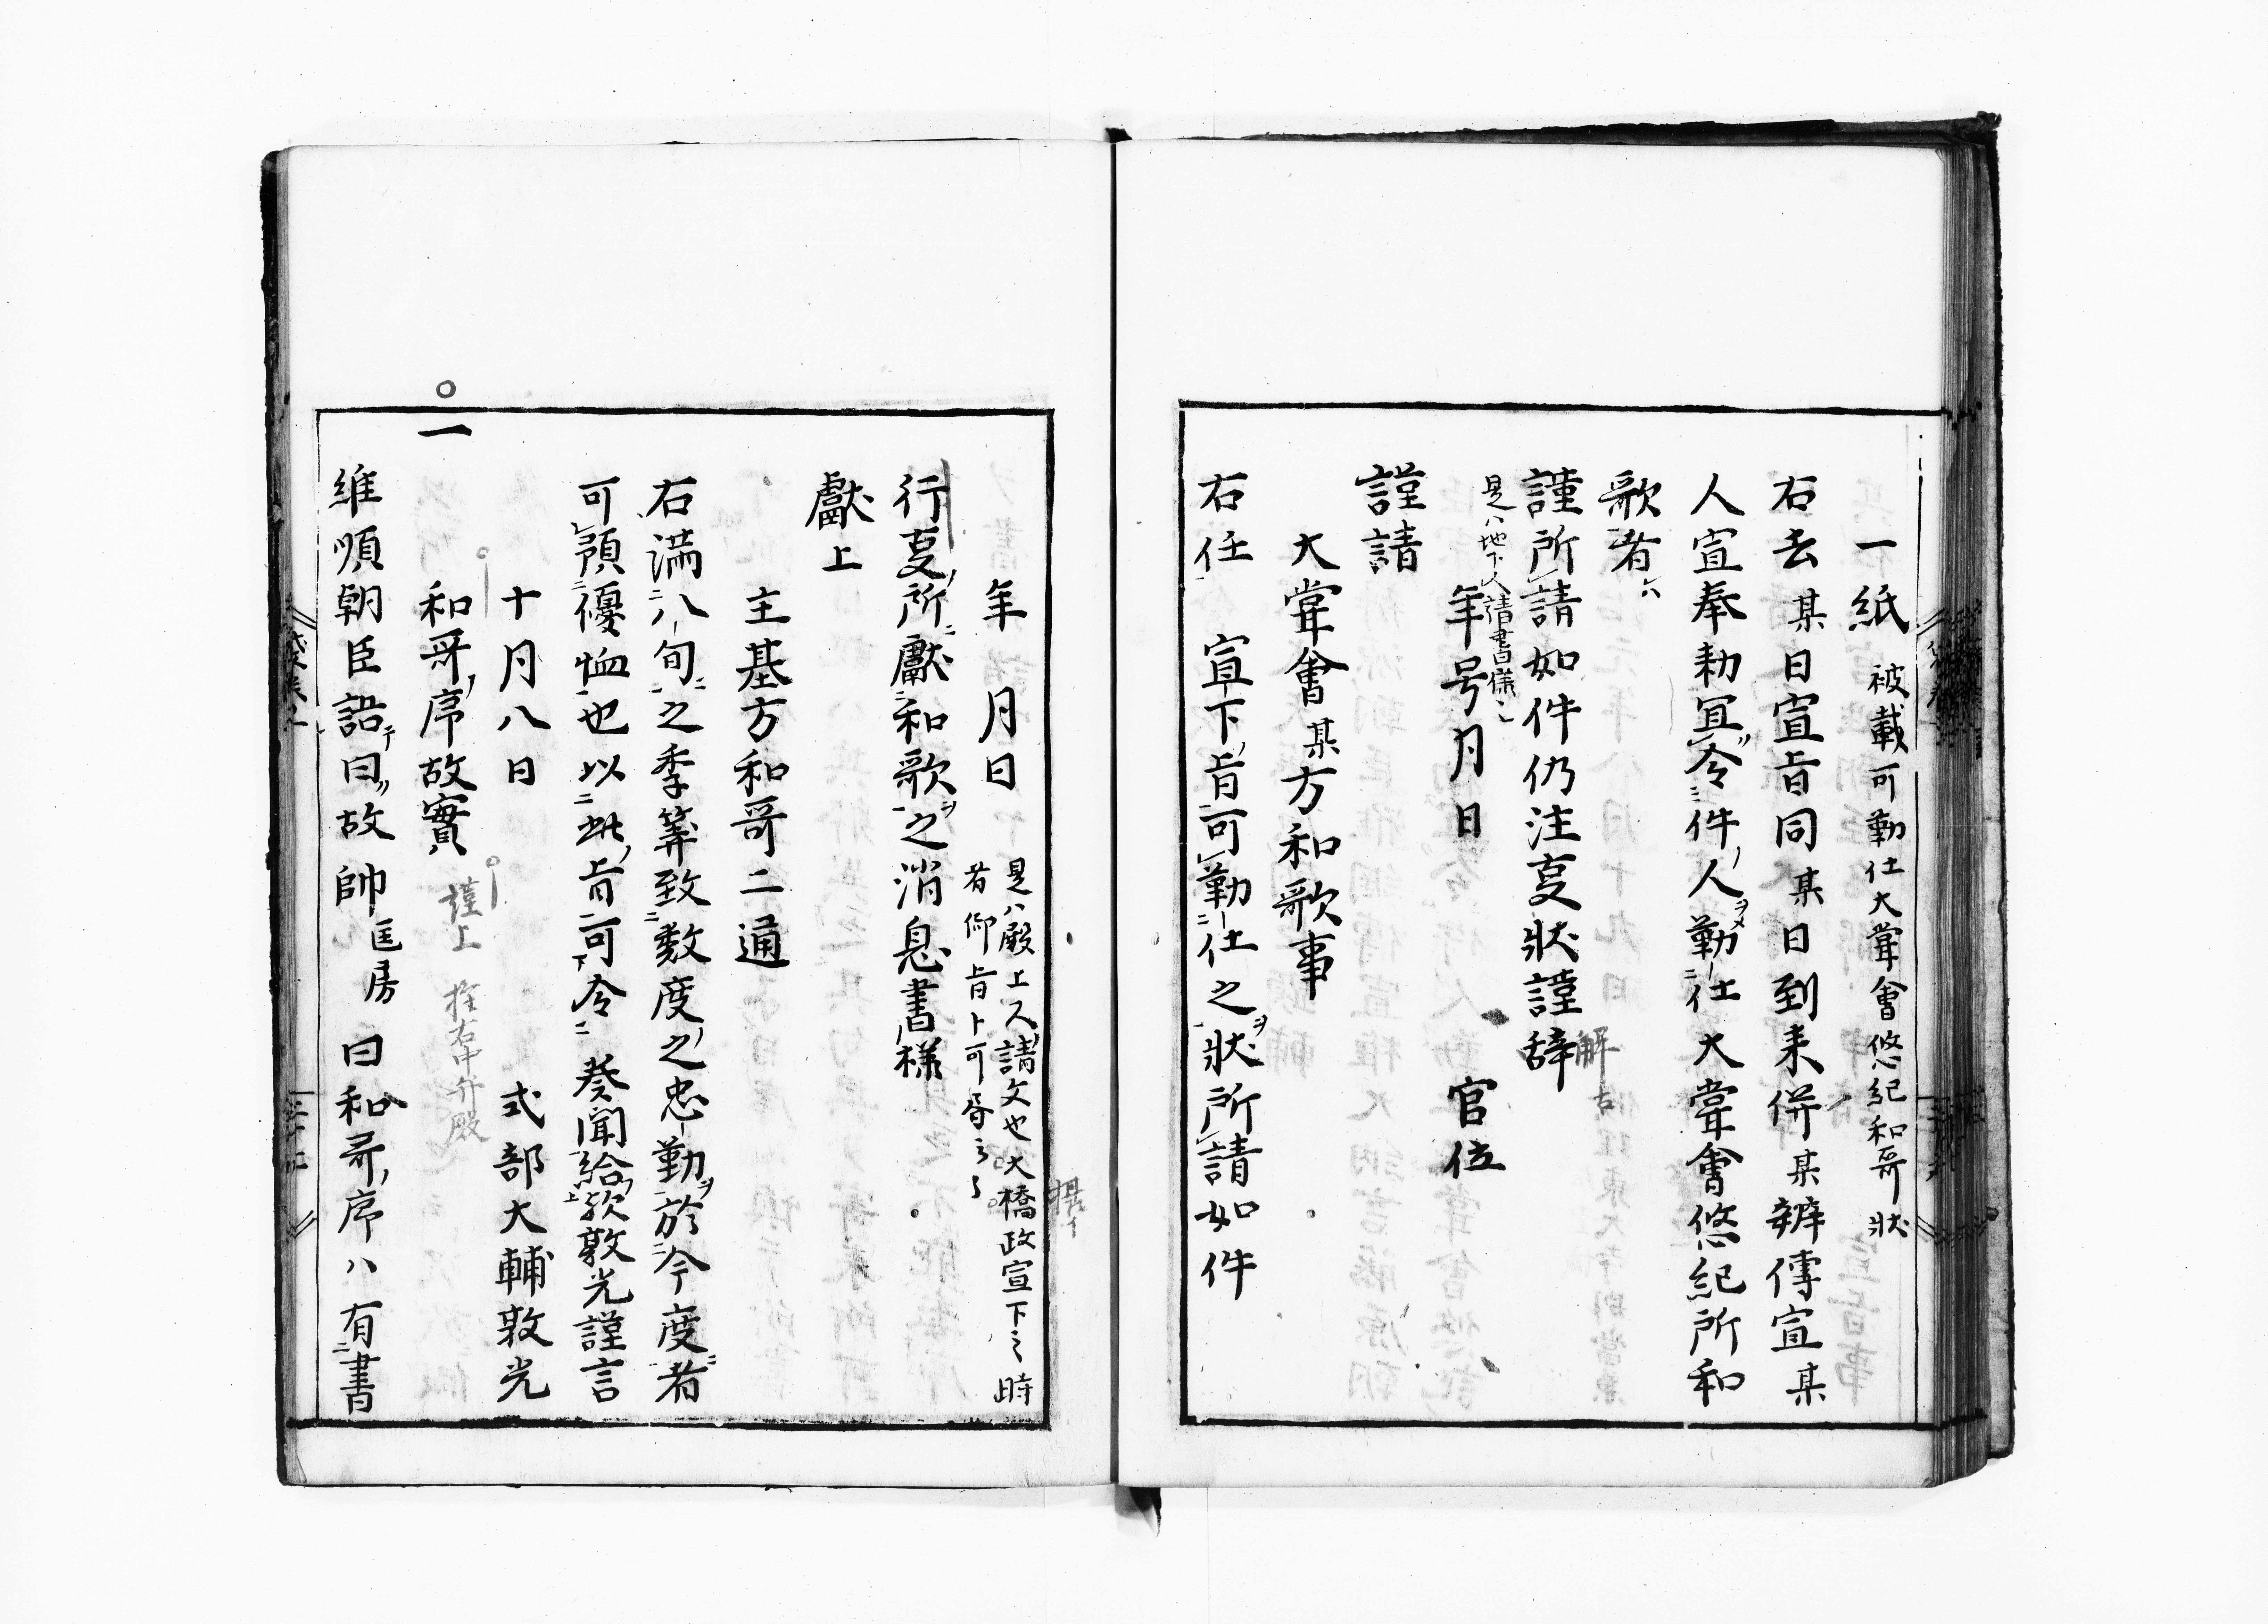 一紙 被載可勤仕大嘗會悠紀和哥狀
右去某日宣旨同某日到来併某辨傳宣某
人宣奉勅冝令件人勤仕大嘗會悠紀所和
歌者
謹所請如件仍注㕝狀謹辞
解
是ハ地下人請書樣
年号月日 官位
謹請
大嘗會某方和歌事
右任 宣下旨可勤仕之狀所請如件
年 月 日
是ハ殿上人請文也大橋政宣下之時
者仰旨ト可
行㕝所獻和歌之消息書樣
獻上
主基方和哥二通
右満八旬之季筭致数度之忠勤於今度者
可預優恤也以此旨可令 奏聞給歟敦光謹言
十月八日 式部大輔敦光
謹上 権右中弁殿
一 和哥序故實
維順朝臣語曰故帥匡房曰和哥序ハ有書